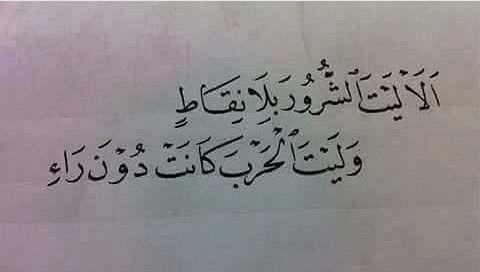 أَلَا لَيْتَ الشُّرُورَ بِلَا نِقَاطٍ
وَلَيْتَ الْحَرْبَ كَانَتْ دُوْنَ رَاءِ